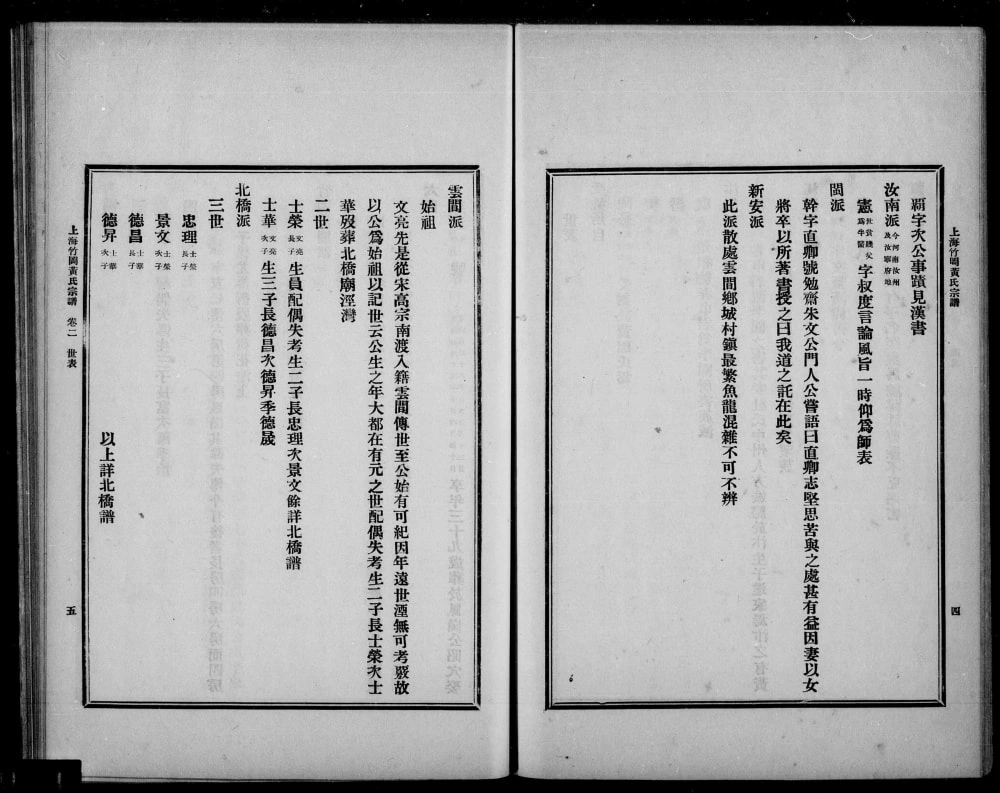 上海竹岡黃氏宗譜
四
霸字次公事蹟見漢書
汝南派今河南汝州及汝寧府地
憲世貧賤父為牛醫字叔度言論風旨一時仰為師表
閩派
幹字直卿號勉齋朱文公門人公嘗語曰直卿志堅思苦與之處甚有益因妻以女
將卒以所著書授之曰我道之託在此矣
新安派
此派散處雲間鄉城村鎮最繁魚龍混雜不可不辨
雲間派
始祖
文亮先是從宋高宗南渡入籍雲間傳世至公始有可紀因年遠世湮無可考覈故
以公為始祖以記世云公生之年大都在有元之世配偶失考生二子長士榮次士
華歿葬北橋廟涇灣
二世
士榮文亮長子生員配偶失考生二子長忠理次景文餘詳北橋譜
士華文亮次子生三子長德昌次德昇季德晟
北橋派
三世
忠理士榮長子
景文士榮次子
德昌士華長子
德昇士華次子
以上詳北橋譜
上海竹岡黃氏宗譜 卷二 世表
五